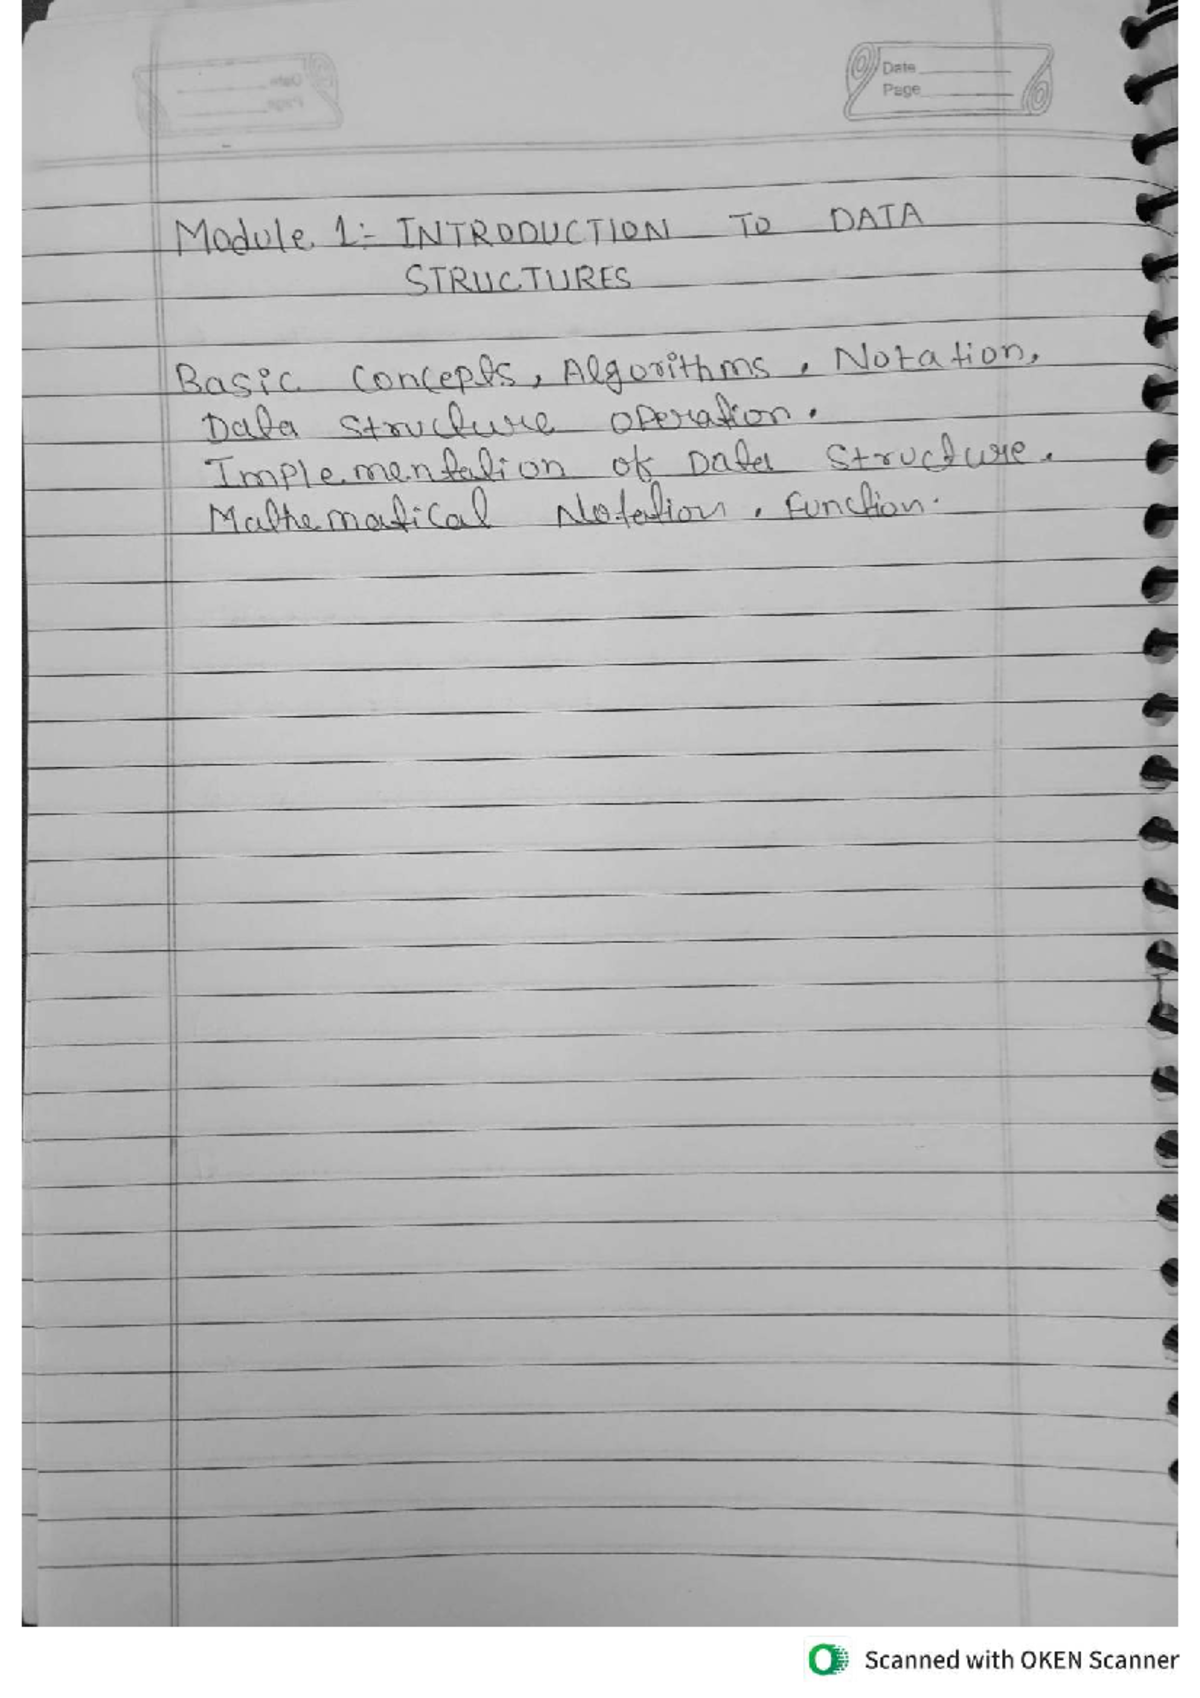 Date
Page
Module 1:- INTRODUCTION TO DATA
STRUCTURES
Basic Concepts, Algorithms, Notation,
Data Structure Operation.
Implementation of Data Structure.
Mathematical Notation, Function.
Scanned with OKEN Scanner